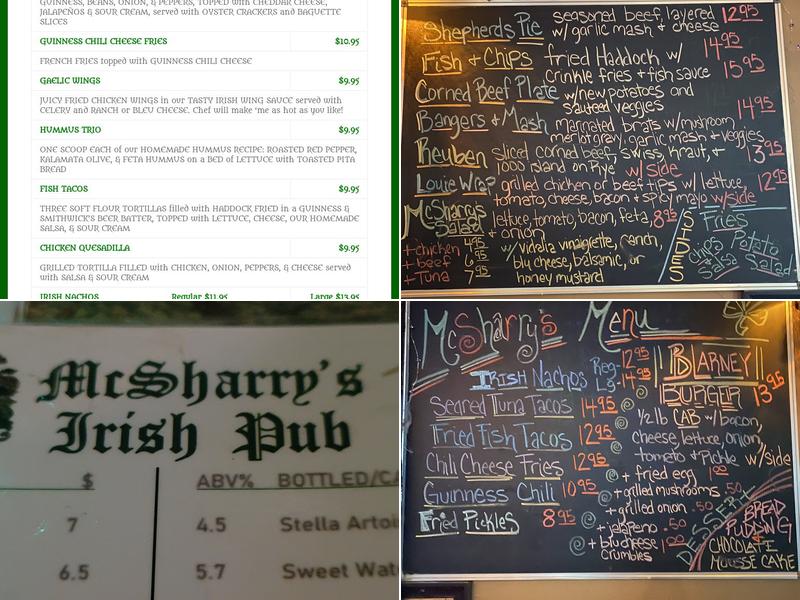 GUINNESS, BEANS, ONION, & PEPPERS, TOPPED with CHEDDAR CHEESE,
JALAPEÑOS & SOUR CREAM, served with OYSTER CRACKERS and BAGUETTE
SLICES
GUINNESS CHILI CHEESE FRIES $10.95
FRENCH FRIES topped with GUINNESS CHILI CHEESE
GAELIC WINGS $9.95
JUICY FRIED CHICKEN WINGS in our TASTY IRISH WING SAUCE served with
CELERY and RANCH or BLEU CHEESE. Chef will make 'me as hot as you like!
HUMMUS TRIO $9.95
ONE SCOOP EACH of our HOMEMADE HUMMUS RECIPE: ROASTED RED PEPPER,
KALAMATA OLIVE, & FETA HUMMUS on a BED of LETTUCE with TOASTED PITA
BREAD
FISH TACOS $9.95
THREE SOFT FLOUR TORTILLAS filled with HADDOCK FRIED in a GUINNESS &
SMITHWICK'S BEER BATTER, TOPPED with LETTUCE, CHEESE, OUR HOMEMADE
SALSA, & SOUR CREAM
CHICKEN QUESADILLA $9.95
GRILLED TORTILLA FILLED with CHICKEN, ONION, PEPPERS, & CHEESE served
with SALSA & SOUR CREAM
IRISH NACHOS Regular $11.95 Large $13.95
Shepherds Pie seasoned beef, layered 12.95
w/garlic mash & cheese
Fish & Chips fried Haddock w/ 14.95
crinkle fries & fish sauce
Corned Beef Plate w/new potatoes and 15.95
sautéed veggies
Bangers & Mash marinated brats w/mushroom, 14.95
merlot gravy, garlic mash & veggies
Reuben sliced corned beef, swiss, kraut, & 13.95
1000 island on Rye w/side
Louie Wrap grilled chicken or beef tips w/ lettuce, 12.95
tomato, cheese, bacon & spicy mayo w/side
McSharry's Salad lettuce, tomato, bacon, feta, 8.95
& onion
+chicken 4.95
+beef 6.95
+Tuna 7.95
w/ Vidalia vinaigrette, ranch,
blu cheese, balsamic, or
honey mustard
SIDES
Fries
Chips & Salsa
Potato Salad
McSharry's
Irish Pub
$ ABV% BOTTLED/CA
7 4.5 Stella Artoi
6.5 5.7 Sweet Wat
McSharry's Menu
Irish Nachos Reg- 12.95
Lg- 14.95
Seared Tuna Tacos 14.95
Fried Fish Tacos 12.95
Chili Cheese Fries 12.95
Guinness Chili 10.95
Fried Pickles 8.95
BLARNEY
BURGER 13.95
1/2 lb CAB w/ bacon,
cheese, lettuce, onion,
tomato & Pickle w/side
+ fried egg 1.00
+ grilled mushrooms .50
+ grilled onion .50
+ jalapeño .50
+ blu cheese 1.00
crumbles
DESSERT
BREAD
PUDDING
&
CHOCOLATE
MOUSSE CAKE